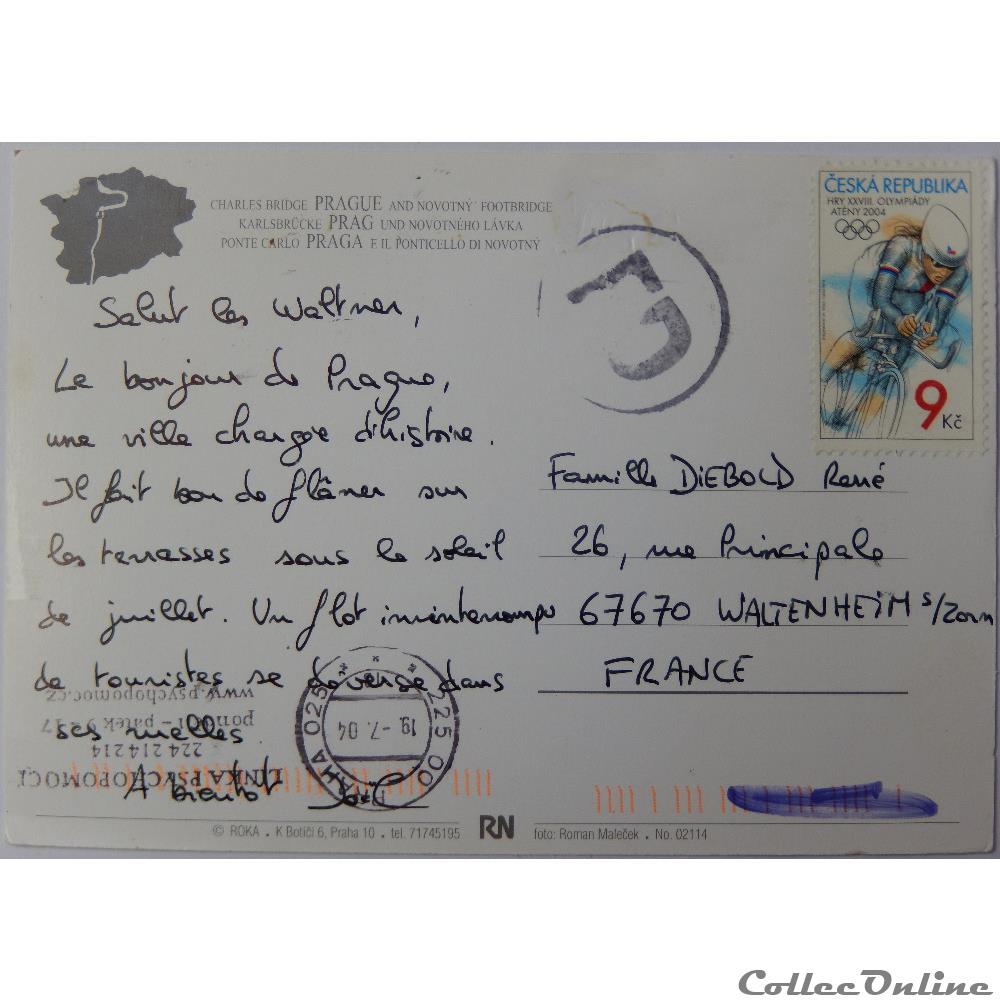 CHARLES BRIDGE PRAGUE AND NOVOTNÝ FOOTBRIDGE
KARLSBRÜCKE PRAG UND NOVOTNÉHO LÁVKA
PONTE CARLO PRAGA E IL PONTICELLO DI NOVOTNÝ
ČESKÁ REPUBLIKA
HRY XXVIII. OLYMPIÁDY
ATÉNY 2004
9 Kč
Salut les Waltner,
Le bonjour de Prague,
une ville chargée d'histoire.
Il fait bon de flâner sur
les terrasses sous le soleil
de juillet. Un flot ininterrompu
de touristes se déverse dans
ses ruelles.
A bientôt
Famille DIEBOLD René
26, rue Principale
67670 WALTENHEIM s/Zorn
FRANCE
225 00 PRAHA 025
19.-7. 04
LINKA PSYCHOPOMOCI
224 214 214
pondělí – pátek 9 - 17
www.psychopomoc.cz
© ROKA . K Botiči 6, Praha 10 . tel. 71745195 RN foto: Roman Maleček . No. 02114
CollecOnline